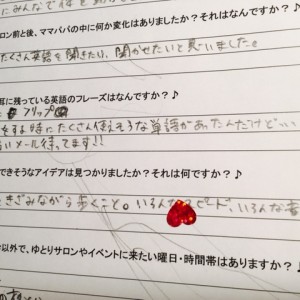 にみんなで
ロン前と後、ママパパの中に何か変化はありましたか？それはなんですか？♪
たくさん英語を聞きたい、聞かせたいと思いました。
耳に残っている英語のフレーズはなんですか？♪
フリップ
する時にたくさん使えそうな単語があったんだけど
メール待てます!!
できそうなアイデアは見つかりましたか？それは何ですか？♪
きざみながら歩くこと。いろんな スピード、いろんな
以外で、ゆとりサロンやイベントに来たい曜日・時間帯はありますか？